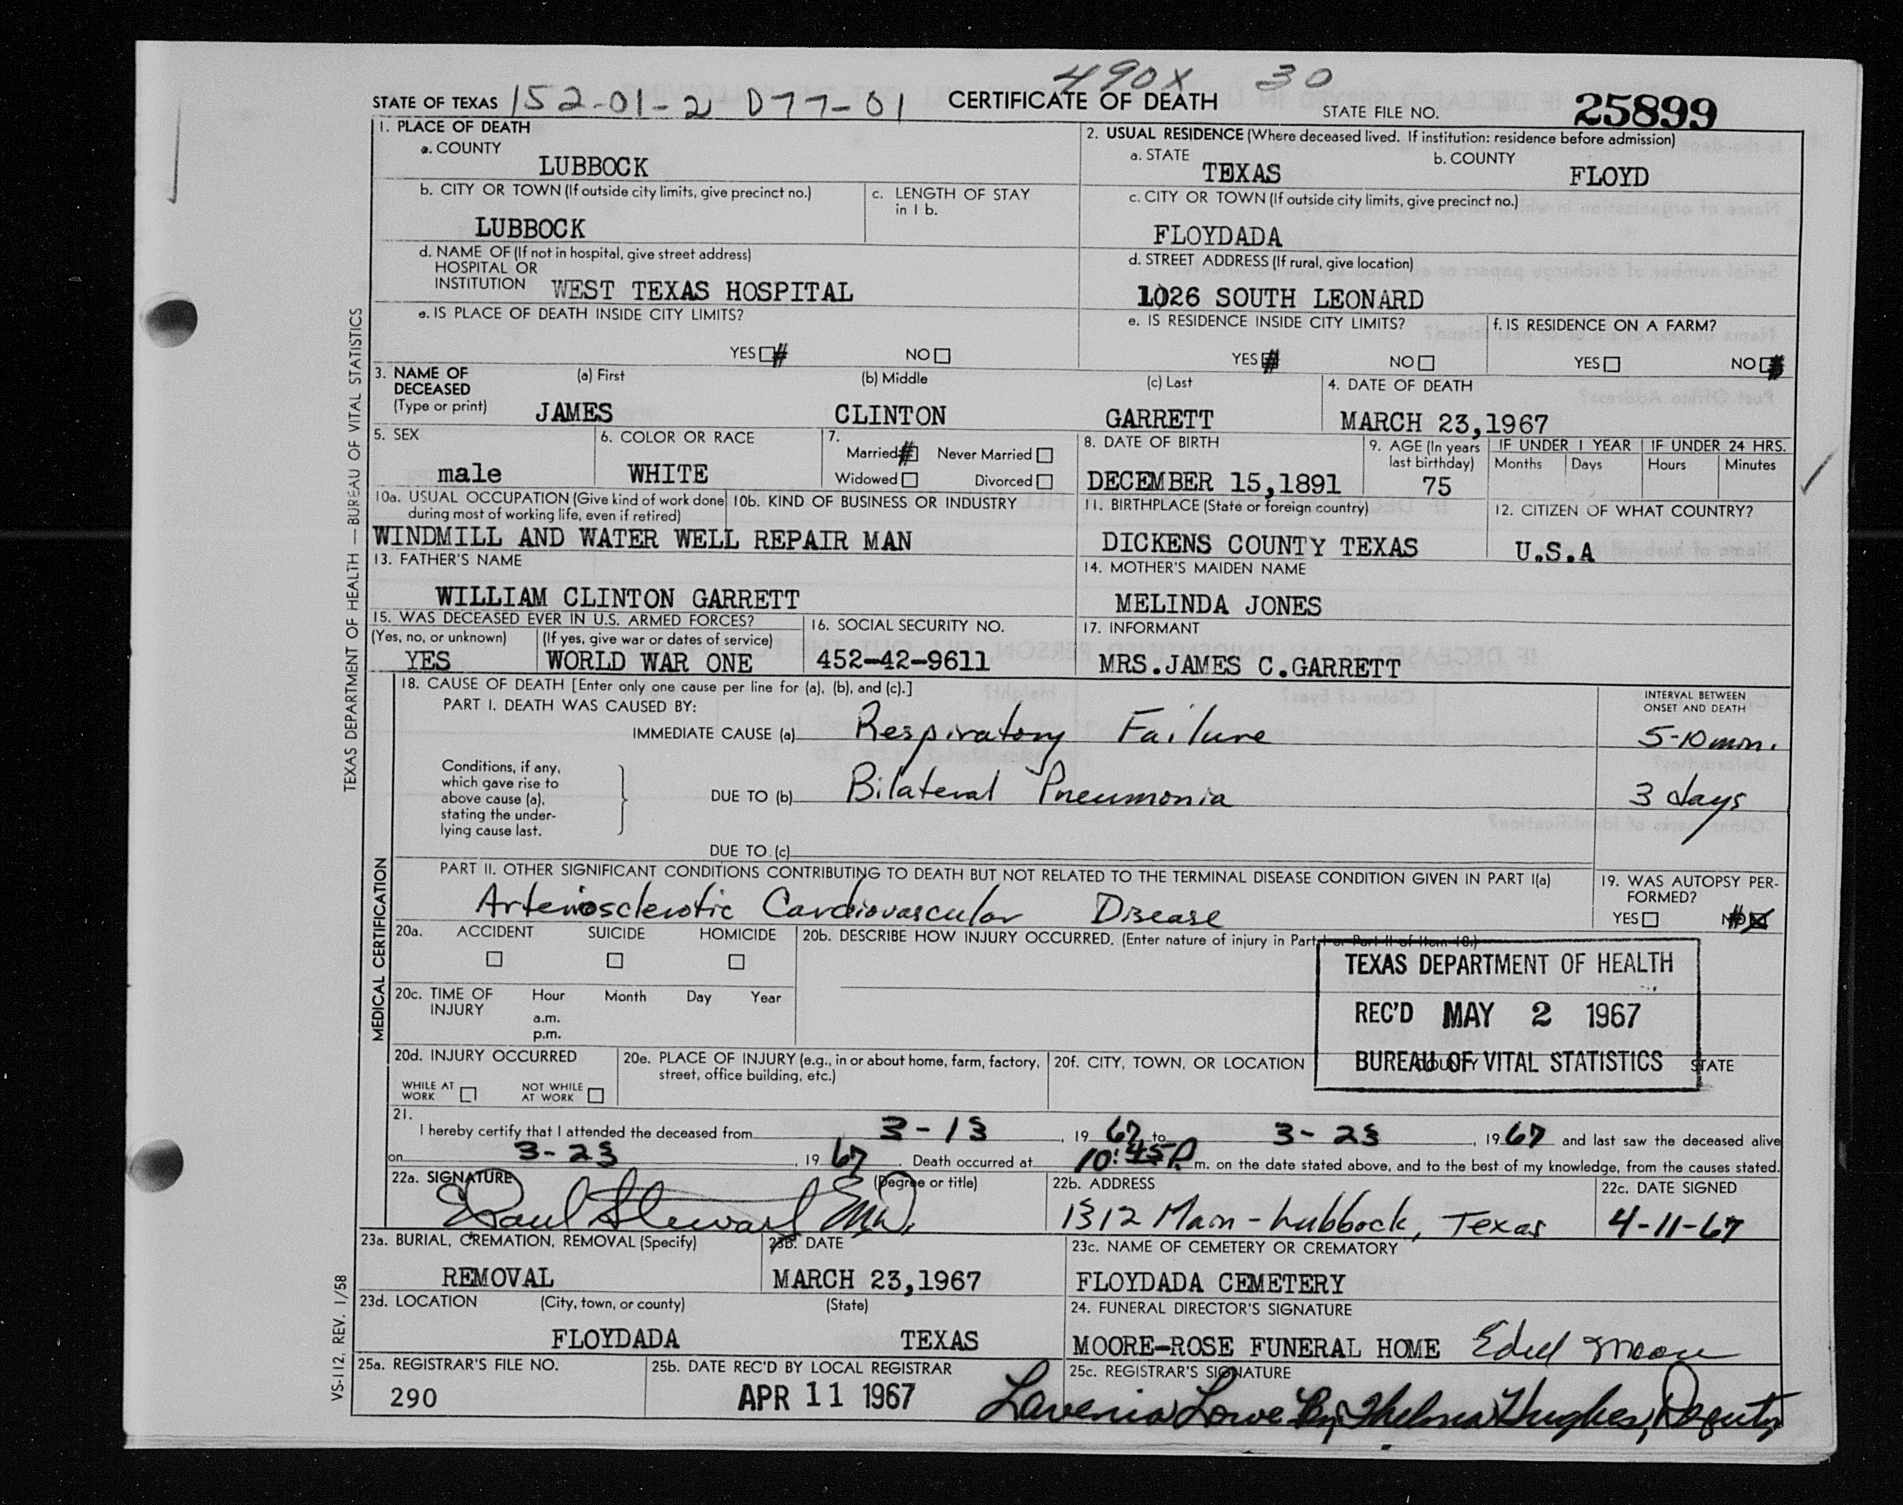 490X 30
STATE OF TEXAS 152-01-2 D77-01 CERTIFICATE OF DEATH STATE FILE NO. 25899
1. PLACE OF DEATH
a. COUNTY
LUBBOCK
b. CITY OR TOWN (If outside city limits, give precinct no.)
c. LENGTH OF STAY in 1 b.
LUBBOCK
d. NAME OF (If not in hospital, give street address)
HOSPITAL OR
INSTITUTION WEST TEXAS HOSPITAL
e. IS PLACE OF DEATH INSIDE CITY LIMITS?
YES # NO
2. USUAL RESIDENCE (Where deceased lived. If institution: residence before admission)
a. STATE b. COUNTY
TEXAS FLOYD
c. CITY OR TOWN (If outside city limits, give precinct no.)
FLOYDADA
d. STREET ADDRESS (If rural, give location)
1026 SOUTH LEONARD
e. IS RESIDENCE INSIDE CITY LIMITS? f. IS RESIDENCE ON A FARM?
YES # NO YES NO #
3. NAME OF DECEASED (Type or print)
(a) First (b) Middle (c) Last
JAMES CLINTON GARRETT
4. DATE OF DEATH
MARCH 23,1967
5. SEX
male
6. COLOR OR RACE
WHITE
7.
Married # Never Married
Widowed Divorced
8. DATE OF BIRTH
DECEMBER 15,1891
9. AGE (In years last birthday)
75
IF UNDER 1 YEAR IF UNDER 24 HRS.
Months Days Hours Minutes
10a. USUAL OCCUPATION (Give kind of work done during most of working life, even if retired)
10b. KIND OF BUSINESS OR INDUSTRY
WINDMILL AND WATER WELL REPAIR MAN
11. BIRTHPLACE (State or foreign country)
DICKENS COUNTY TEXAS
12. CITIZEN OF WHAT COUNTRY?
U.S.A
13. FATHER'S NAME
WILLIAM CLINTON GARRETT
14. MOTHER'S MAIDEN NAME
MELINDA JONES
15. WAS DECEASED EVER IN U.S. ARMED FORCES?
(Yes, no, or unknown) (If yes, give war or dates of service)
YES WORLD WAR ONE
16. SOCIAL SECURITY NO.
452-42-9611
17. INFORMANT
MRS.JAMES C.GARRETT
18. CAUSE OF DEATH [Enter only one cause per line for (a), (b), and (c).]
PART I. DEATH WAS CAUSED BY:
INTERVAL BETWEEN ONSET AND DEATH
IMMEDIATE CAUSE (a) Respiratory Failure 5-10 min.
Conditions, if any, which gave rise to above cause (a), stating the underlying cause last.
DUE TO (b) Bilateral Pneumonia 3 days
DUE TO (c)
PART II. OTHER SIGNIFICANT CONDITIONS CONTRIBUTING TO DEATH BUT NOT RELATED TO THE TERMINAL DISEASE CONDITION GIVEN IN PART I(a)
Arteriosclerotic Cardiovascular Disease
19. WAS AUTOPSY PERFORMED?
YES NO
20a. ACCIDENT SUICIDE HOMICIDE
20b. DESCRIBE HOW INJURY OCCURRED. (Enter nature of injury in Part I or Part II of Item 18.)
20c. TIME OF INJURY
Hour Month Day Year
a.m.
p.m.
TEXAS DEPARTMENT OF HEALTH
REC'D MAY 2 1967
BUREAU OF VITAL STATISTICS
20d. INJURY OCCURRED
WHILE AT WORK NOT WHILE AT WORK
20e. PLACE OF INJURY (e.g., in or about home, farm, factory, street, office building, etc.)
20f. CITY, TOWN, OR LOCATION COUNTY STATE
21.
I hereby certify that I attended the deceased from 3-13, 1967 to 3-23, 1967 and last saw the deceased alive
on 3-23, 1967. Death occurred at 10:45P.m. on the date stated above, and to the best of my knowledge, from the causes stated.
22a. SIGNATURE (Degree or title)
Paul Stewart MD.
22b. ADDRESS
1312 Main - Lubbock, Texas
22c. DATE SIGNED
4-11-67
23a. BURIAL, CREMATION, REMOVAL (Specify)
REMOVAL
23b. DATE
MARCH 23,1967
23c. NAME OF CEMETERY OR CREMATORY
FLOYDADA CEMETERY
23d. LOCATION (City, town, or county) (State)
FLOYDADA TEXAS
24. FUNERAL DIRECTOR'S SIGNATURE
MOORE-ROSE FUNERAL HOME Edell Moore
25a. REGISTRAR'S FILE NO.
290
25b. DATE REC'D BY LOCAL REGISTRAR
APR 11 1967
25c. REGISTRAR'S SIGNATURE
Lavenia Lowe By, Thelma Hughes, Deputy
TEXAS DEPARTMENT OF HEALTH — BUREAU OF VITAL STATISTICS
MEDICAL CERTIFICATION
VS-112, REV. 1/58